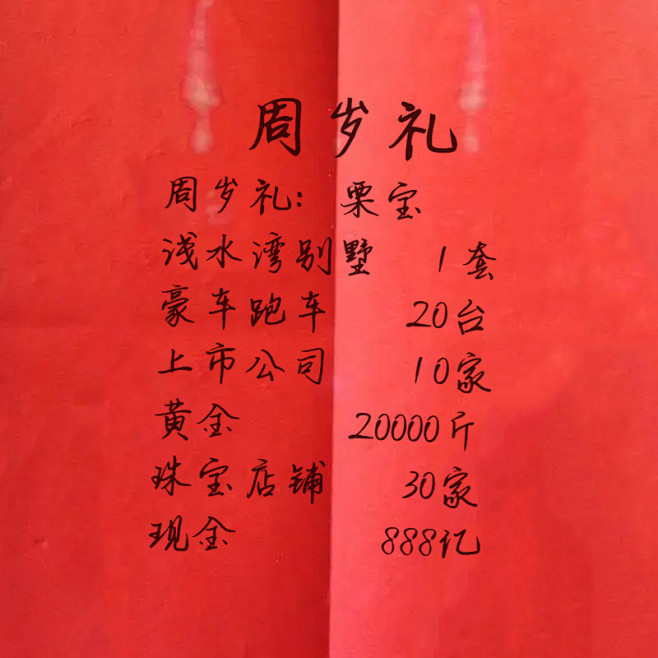 周岁礼
周岁礼: 栗宝
浅水湾别墅 1套
豪车跑车 20台
上市公司 10家
黄金 20000斤
珠宝店铺 30家
现金 888亿